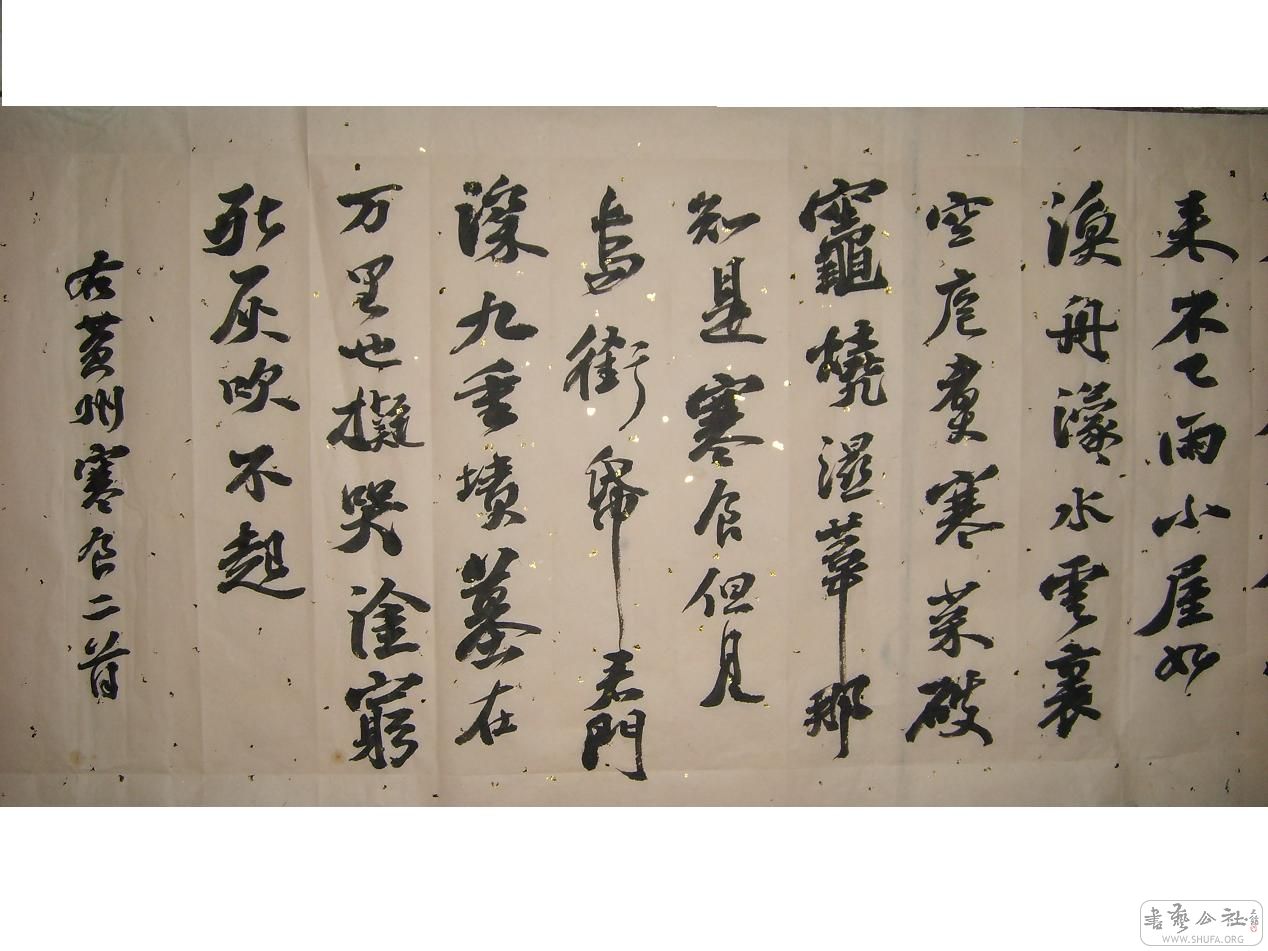 来不已雨小屋如
漁舟濛々水雲裏
空庖煮寒菜破
竈燒濕葦那
知是寒食但見
烏銜帋君門
深九重墳墓在
万里也擬哭塗窮
死灰吹不起
右黄州寒食二首
書藝公社
WWW.SHUFA.ORG